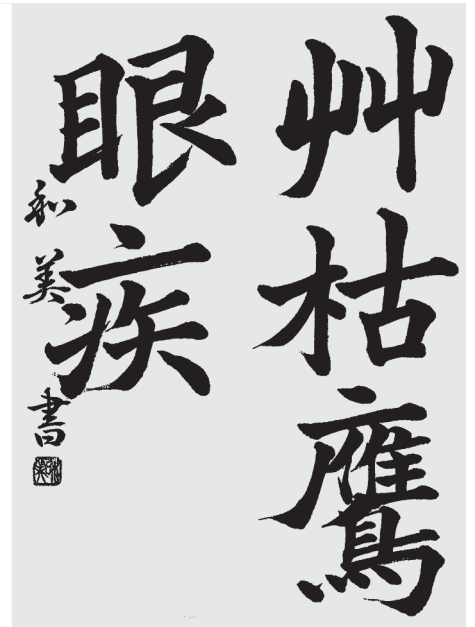 艸枯鷹
眼疾
和美書